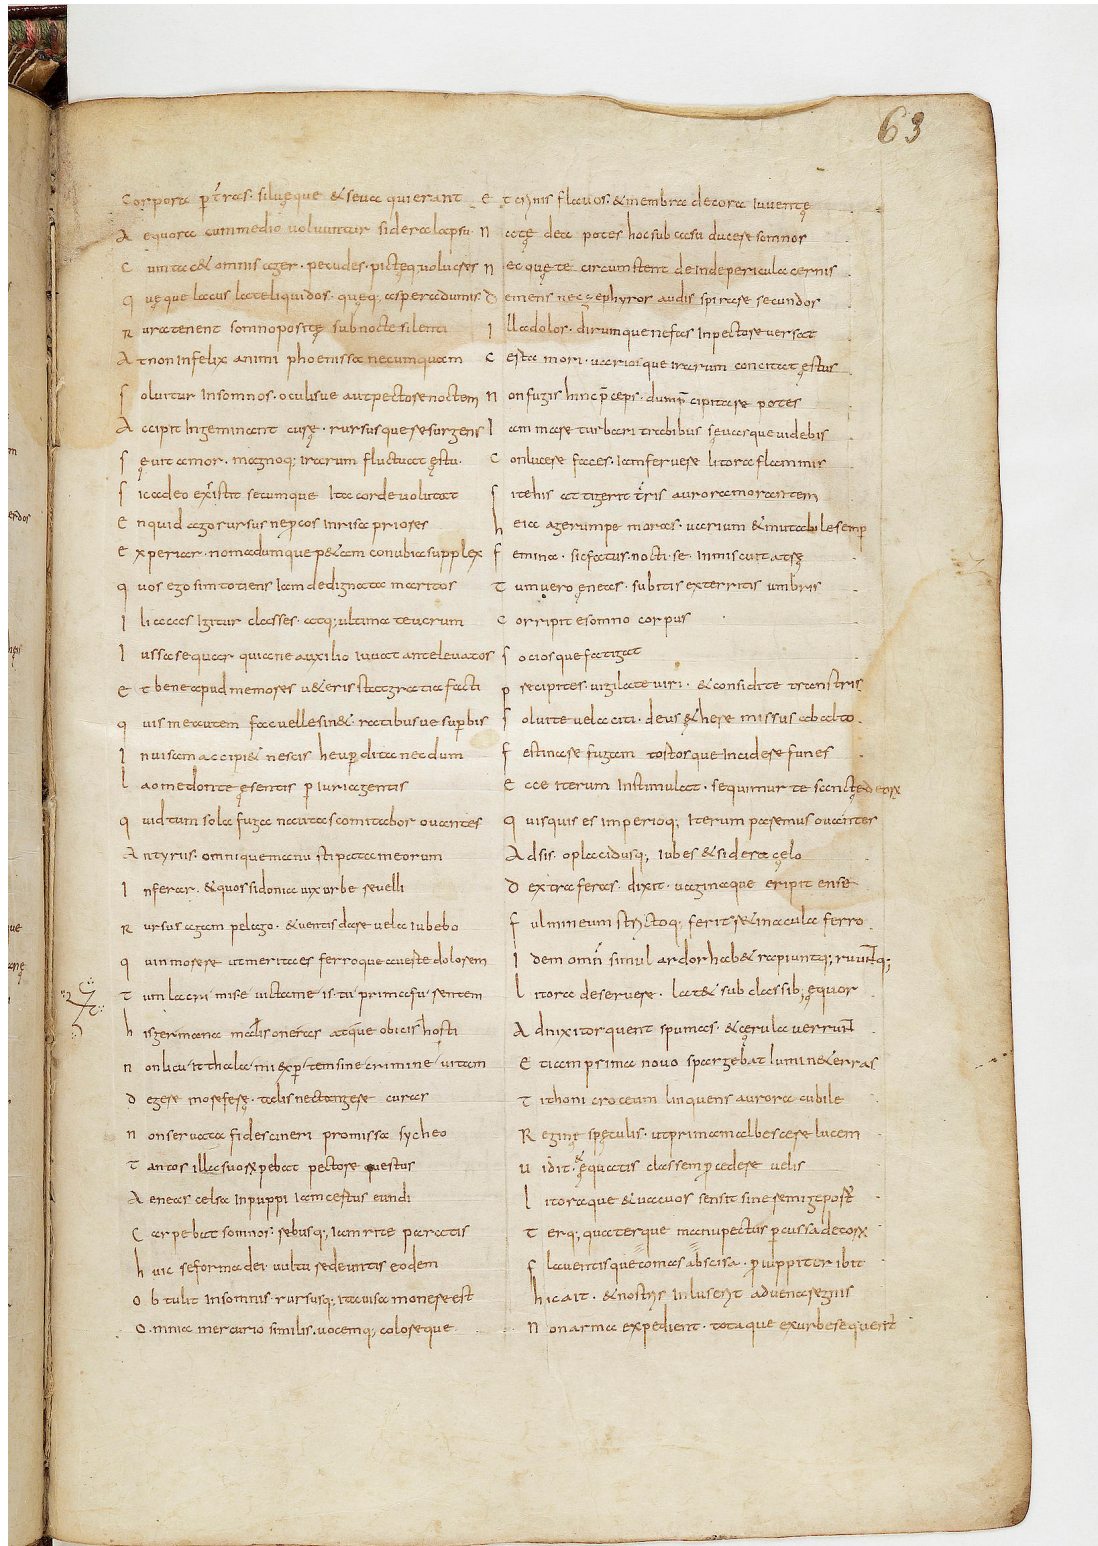 63
Corpora p t&ras. silueque & seua quierant
A equora cum medio uoluuntur sidera lapsu.
C um tac& omnis ager. pecudes. pictęq; uolucres
q uęque lacus late liquidos. quęq; aspera dumis
R ura tenent somno positę sub nocte silenti
A t non infelix animi phoenissa nec umquam
S oluitur insomnos. oculisue aut pectore noctem
A ccipit ingeminant curę. rursusque resurgens
S ęuit amor. magnoq; irarum fluctuat ęstu.
S ic adeo existit secumque ita corde volutat
E n quid ago rursus ne pcos inrisa priores
E xperiar. nomadumque p&am conubia supplex
q uos ego sim totiens iam dedignata maritos
I liacas igitur classes. atq; ultima teucrum
I ussa sequar quiane auxilio iuuat ante leuatos
E t bene apud memores u&eris stat gratia facti
q uis me autem fac uelle sin&. ratibusue supbis
I nuisam accipi& nescis heu pdita necdum
L aomedonte ęsentis p iuria gentis
q uid tum sola fuga nautas comitabor ouantes
A n tyriis. omnique manu stipata meorum
I nferar. & quos sidonia uix urbe reuelli
R ursus agam pelago. & uentis dare uela iubebo
q uin morere ut merita es ferroque aueste dolorem
T um lacrimis e uicta meis tu prima furentem
h is germana malis oneras atque obicis hosti
n on licuit thalami exp tem sine crimine uitam
d egere more ferę. talis nec tangere curas
n on seruata fides cineri promissa sycheo
T antos illa suo rũpebat pectore questus
A eneas celsa in puppi iam certus eundi
C arpebat somnos. rebusq; iam rite paratis
h uic se forma dei uultu redeuntis eodem
O btulit in somnis rursusq; ita uisa monere est
O mnia mercurio similis. uocemq; coloreque
E t crinis flauos. & membra decora iuuentę
N atę dea potes hoc sub casu ducere somnos
N ec quę te circumstent deinde pericula cernis
D emens nec zephyror audis spirare secundos
I lla dolos. dirumque nefas in pectore uersat
C erta mori. uariosque irarum concitat ęstus
N on fugis hinc p̄ceps. dum p̄cipitare potes
I am mare turbari trabibus sęuasque uidebis
C onlucere faces. iam feruere litora flammis
S i te his attigerit terris aurora morantem
h eia age rumpe moras. uarium & mutabile semp
F emina. sic fatus. nocti. se. inmiscuit atrę
T um uero ęneas. subitis exterritus umbris
C orripit e somno corpus
S ociosque fatigat
p recipites. uigilate uiri. & considite transtris
S oluite uela citi. deus ęthere missus ab alto
F estinare fugam tostosque incidere funes
E cce iterum instimulat. sequimur te sancte deorx
Q uisquis es imperioq; iterum paremus ouantes
A dsis. o placidusq; iubes & sidera cęlo
D extra feras. dixit. uaginaque eripit ense
F ulmineum strictoq; ferit r&inacula ferro
I dem omis simul ardor hab& rapiuntq; ruuntq;
L itora deseruere. lat& sub classib; ęquor
A dnixi torquent spumas. & cęrula uerrunt
E t iam prima nouo spargebat lumine terras
T ithoni croceum linquens aurora cubile
R eginę speculis. ut primam albescere lucem
U idit. & ęquatis classem pcedere uelis
L itoraque & uacuos sensit sine remige post
T erq; quaterque manu pectus pcussa decorx
F lauentisque comas abscisa. p iuppiter ibit
h ic ait. & nostris inluserit aduena regnis
N on arma expedient. totaque ex urbe sequent